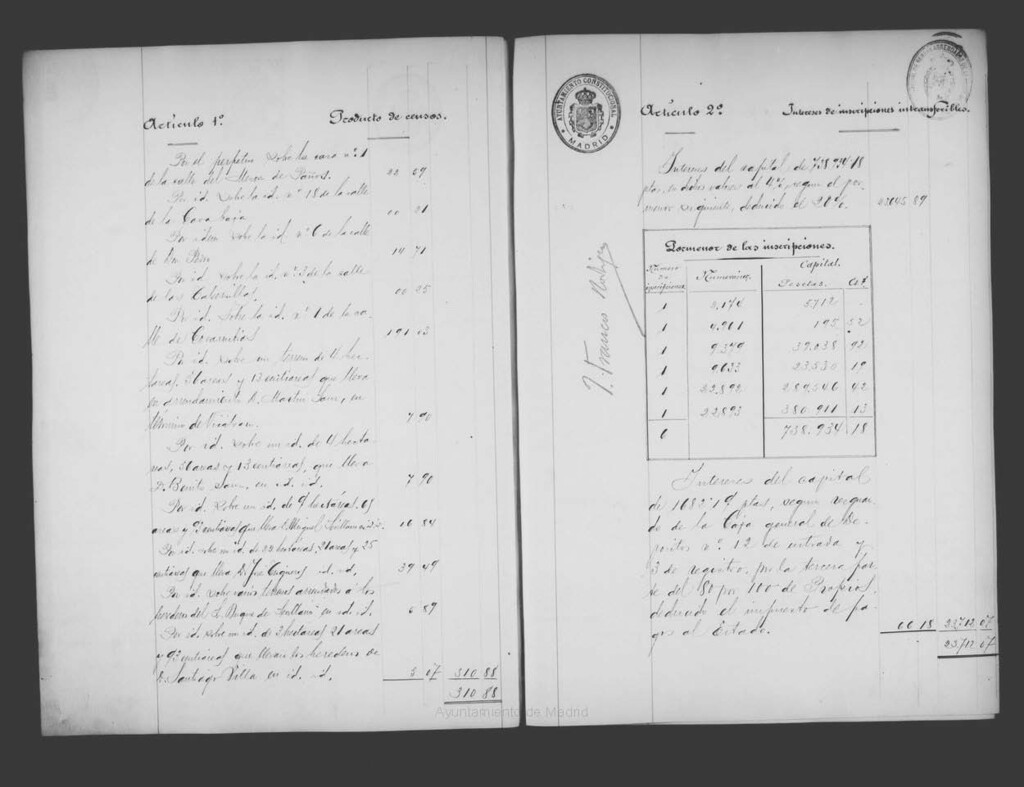 Artículo 1º. Producto de censos.
Por el perpetuo sobre la casa nº. 1
de la calle del Mesón de Paños. 09
Por id. sobre la id. nº 18 de la calle
de la Cava baja 00 21
Por idem sobre la id. nº 6 de la calle
de 14 71
Por id. sobre la id. nº 2 de la calle
de las Cabrillas. 00 25
Por id. sobre la id. nº 1 de la ca-
lle de 191 63
Por id. sobre un terreno de 4 hec-
táreas, 31 areas y 13 centiáreas que lleva
en arrendamiento D. Martín en
término de Vicálvaro. 7 90
Por id. sobre un id. de 4 hectá-
reas, 31 areas y 13 centiáreas, que lleva
D. Benito en id. id. 7 90
Por id. sobre un id. de 9 hectáreas, 01
areas y 93 centiáreas que lleva D. Miguel id. id. 16 84
Por id. sobre un id. de 22 hectáreas, 21 areas y 25
centiáreas que lleva D. José id. id. 39 49
Por id. sobre varios terrenos arrendados a los
herederos del S. Duque de Sevillano en id. id. 6 87
Por id. sobre un id. de 2 hectáreas 21 areas
y 93 centiáreas que llevan los herederos de
D. Santiago Villa en id. id. 5 07 310 88
310 88
AYUNTAMIENTO CONSTITUCIONAL
MADRID
Artículo 2º Intereses de inscripciones intransferibles.
Intereses del capital de 738.934'18
ptas, en dichos valores al 4%, segun el por
menor siguiente, deducido el 20%. 23645 89
Pormenor de las inscripciones.
Número de inscripciones Numeración. Capital.
Pesetas. Cts.
1 3.174 5712 .
1 4.911 195 52
1 9.379 39.038 92
1 9.633 23.530 19
1 22.892 289.546 42
1 22.893 380.911 13
6 738.934 18
Intereses del capital
de 1682'19 ptas, segun resguar-
do de la Caja general de De-
pósitos nº. 12 de entrada y
3 de registro, por la tercera par-
te del 80 por 100 de Propios,
deducido el impuesto de pa-
gos al Estado. 66 18 23712 07
23712 07
Ayuntamiento de Madrid